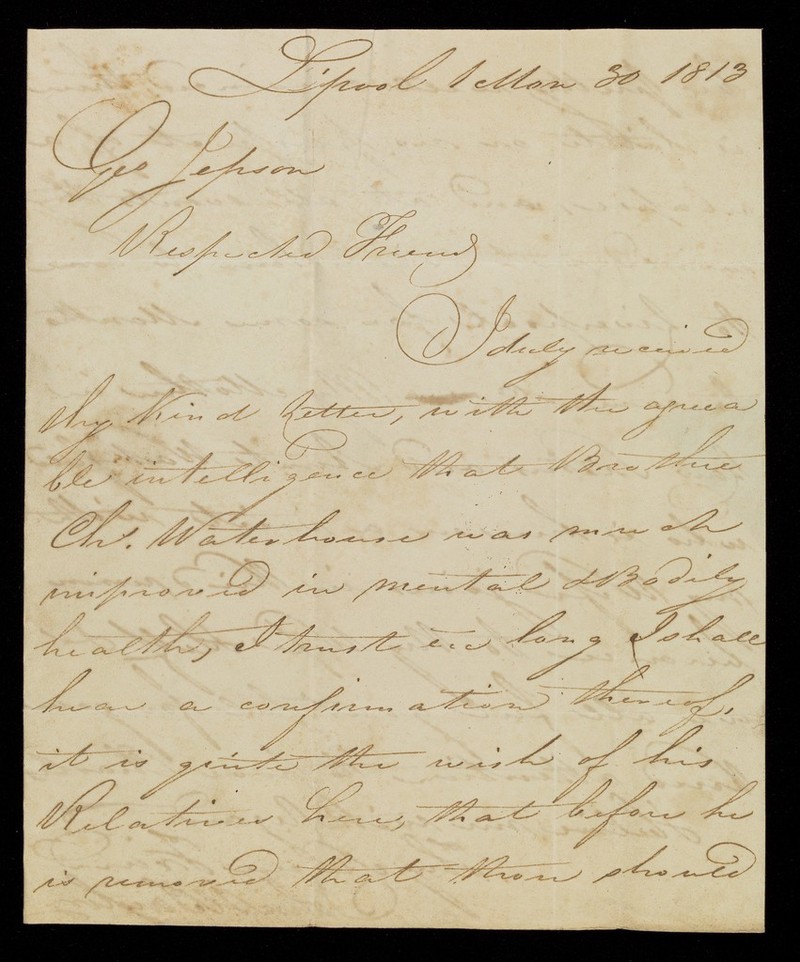 L'pool 1 Mon 30 1813
Geo Jepson
Respected Friend
I duly received
thy kind Letter, with the agreea
ble intelligence that Brother
Chr. Waterhouse was much
improved in mental & Bodily
health, I trust ere long I shall
hear a confirmation thereof,
it is quite the wish of his
Relatives here, that before he
is removed that thou should